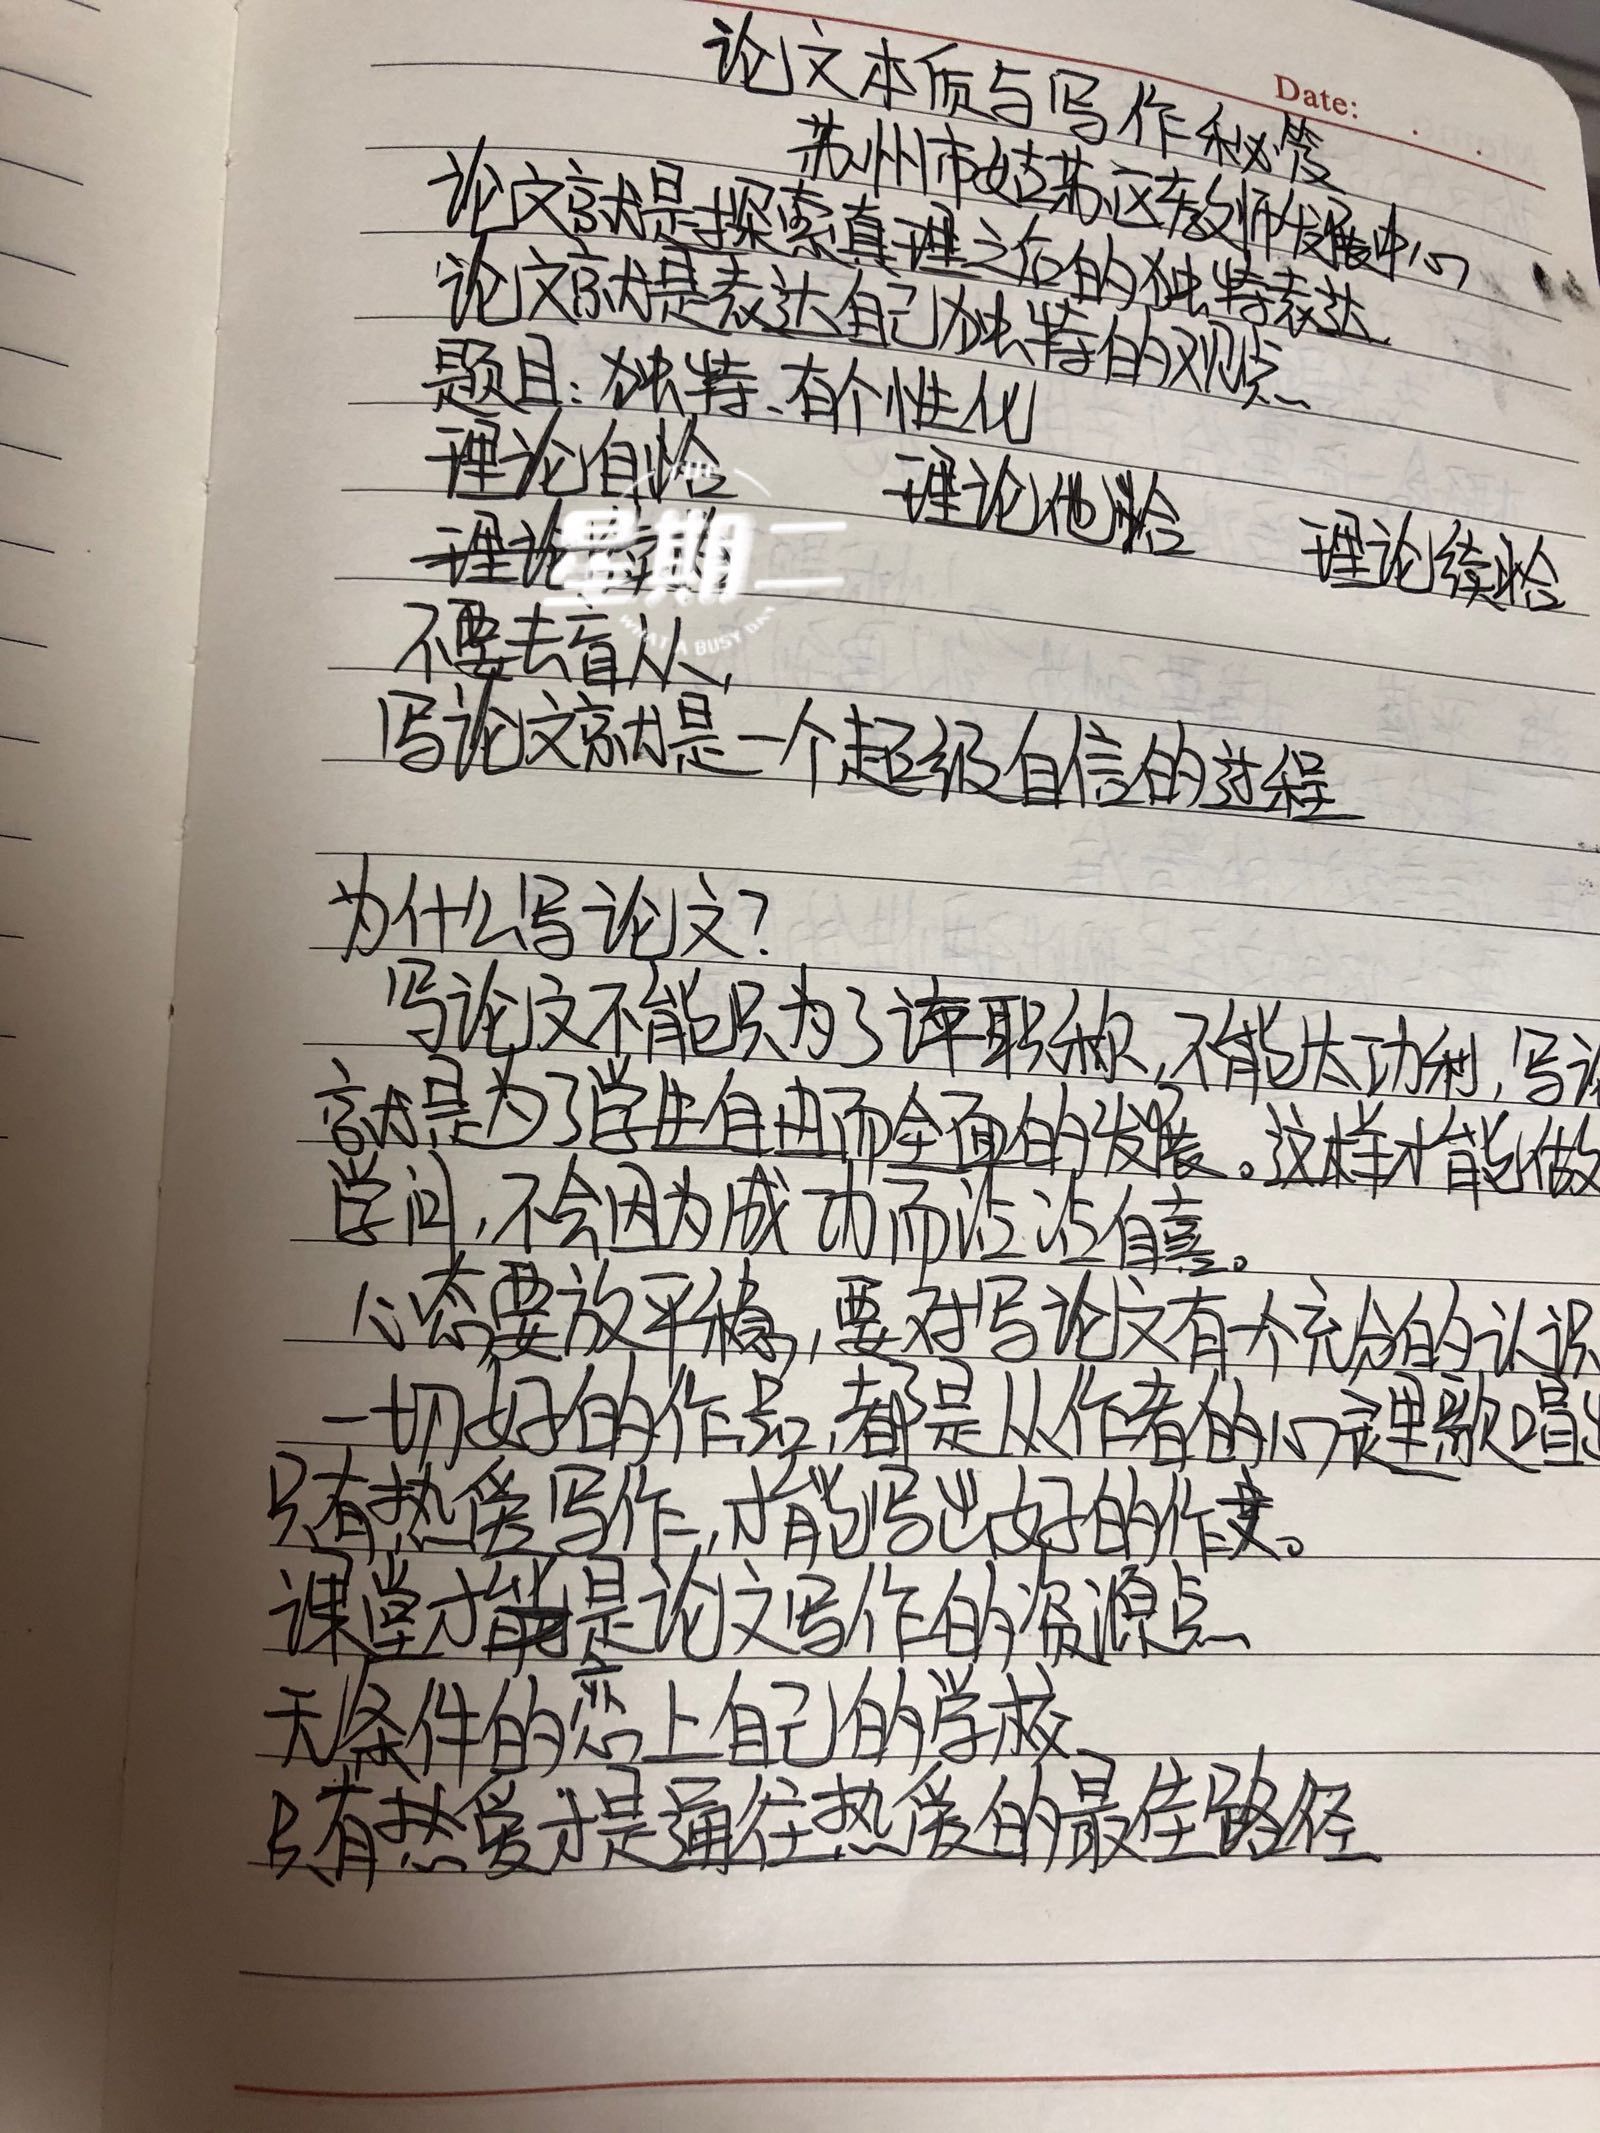 Date:
论文本质与写作秘笈
苏州市姑苏区教师发展中心
论文就是探索真理之后的独特表达
论文就是表达自己独特的观点
题目：独特、有个性化
理论自恰 理论他恰 理论续恰
理论
星期二
WHAT A BUSY DAY
不要去盲从，
写论文就是一个超级自信的过程
为什么写论文？
写论文不能只为了评职称，不能太功利，写论
就是为了学生自由而全面的发展。这样才能做
学问，不会因为成功而沾沾自喜。
心态要放平稳，要对写论文有个充分的认识
一切好的作品，都是从作者的心灵里歌唱出
只有热爱写作，才能写出好的作文。
课堂才是论文写作的资源点
无条件的恋上自己的学校
只有热爱才是通往热爱的最佳路径